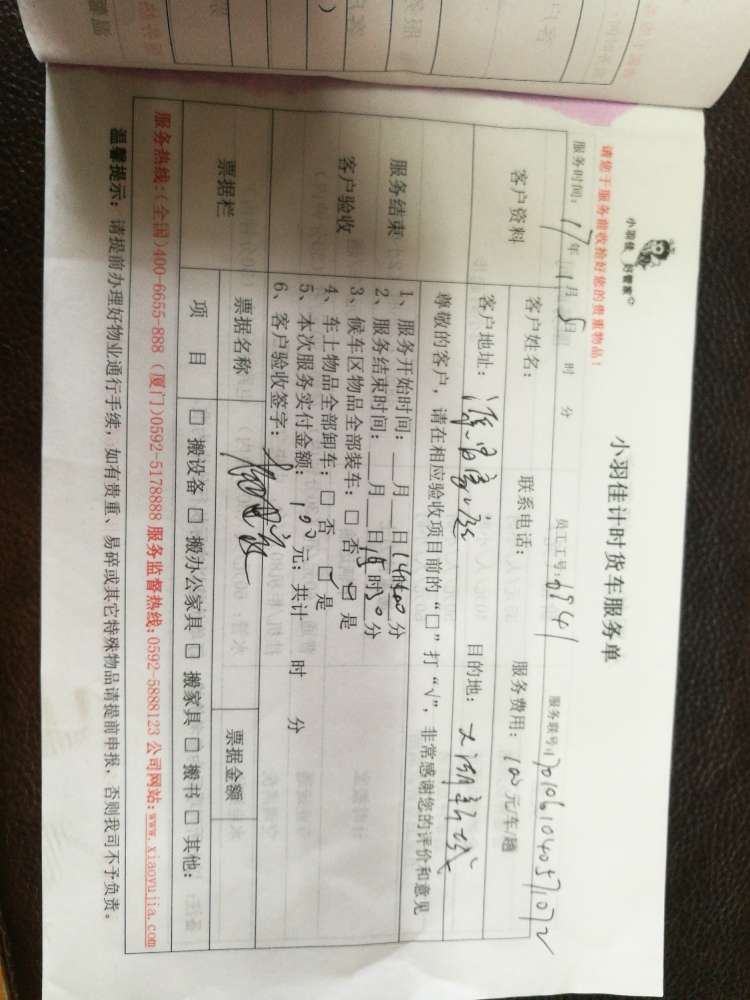 小羽佳 好管家
小羽佳计时货车服务单
请您于服务前收拾好您的贵重物品！
服务时间：17年11月5日 时 分 员工工号：6941 服务联号：
客户资料 客户姓名： 联系电话： 服务费用：100元/车/趟
客户地址： 目的地：
尊敬的客户，请在相应验收项目前的“□”打“√”，非常感谢您的评价和意见
服务结束
客户验收
1、服务开始时间：__月__日14时00分
2、服务结束时间：__月__日15时30分
3、候车区物品全部装车：□ 否 □ 是
4、车上物品全部卸车：□ 否 □ 是
5、本次服务实付金额：100元；共计 时 分
6、客户验收签字：
票据栏 票据名称 票据金额
项 目 □ 搬设备 □ 搬办公家具 □ 搬家具 □ 搬书 □ 其他：
服务热线:(全国)400-6655-888 (厦门)0592-5178888 服务监督热线:0592-5888123 公司网站:www.xiaoyujia.com
温馨提示：请提前办理好物业通行手续，如有贵重、易碎或其它特殊物品请提前申报，否则我司不予负责。